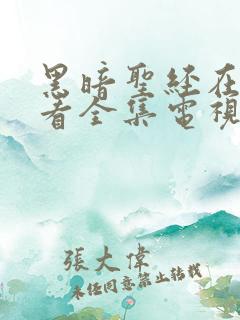 黑暗聖经在
看全集電視
張大偉
未经同意禁止转载